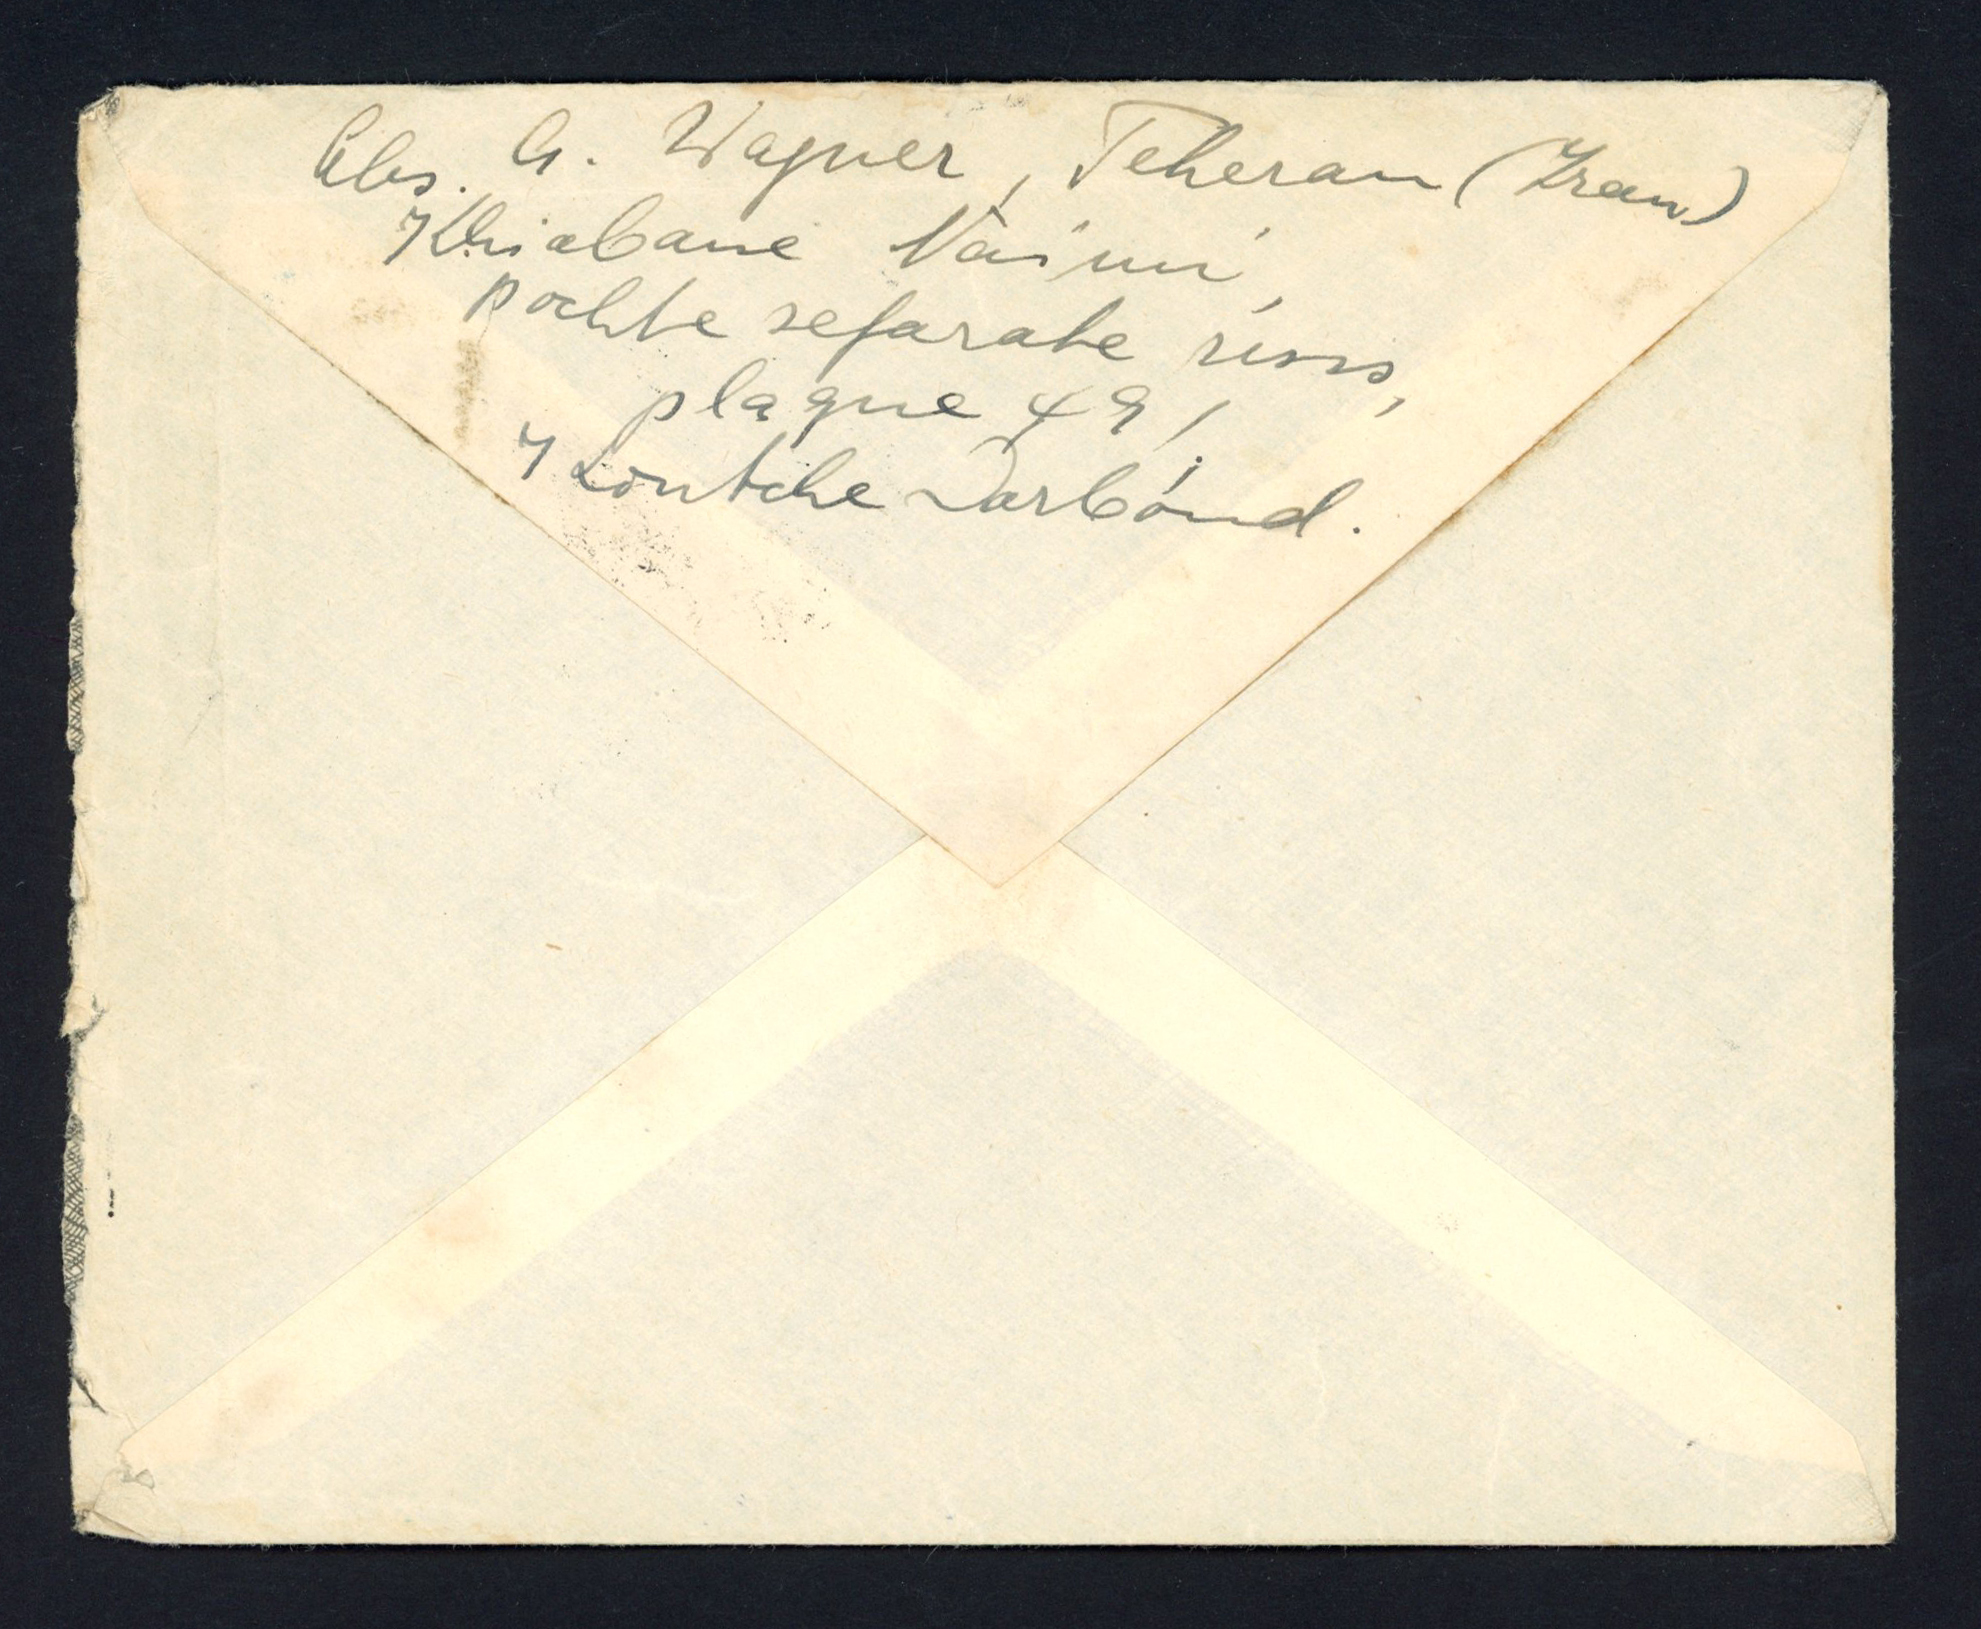 Abs. A. Wagner, Teheran (Iran)
Khiabane Naïmi,
pochte sefarate russ,
plaque 49,
Koutche Darbánd.